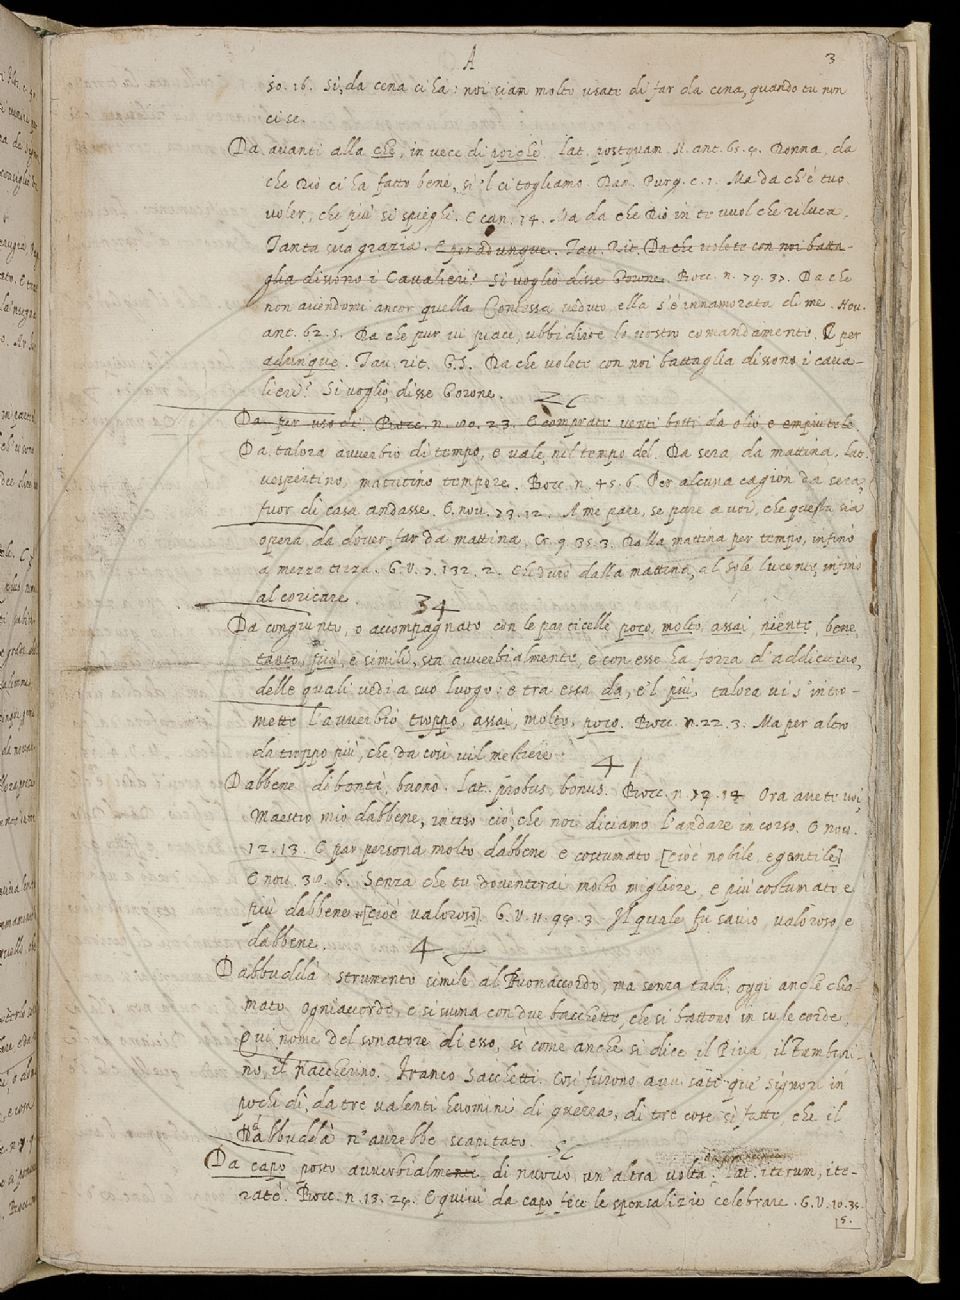 A 3
50. 16. Sì, da cena ci ha: noi siam molto usate di far da cena, quando tu non
ci se.
Da avanti alla che, in vece di poiché. lat. postquam. N. ant. 65. 4. Donna, da
che Dio ci ha fatto bene, si 'l ci togliamo. Dan. Purg. c. 1. Ma da ch'è tuo
voler, che più si spieghi. E can. 14. Ma da che Dio in te vuol che riluca,
Tanta sua grazia. E per adunque. Tav. Rit. Da che volete con noi batta-
glia dissono i Cavalieri? Sì voglio disse Borone. Bocc. n. 79. 37. Da che
non avendomi ancor quella Contessa veduto, ella s'è innamorata di me. Nov.
ant. 62. 5. Da che pur vi piace, ubbidirò lo vostro comandamento. E per
adunque. Tav. rit. G.S. Da che volete con noi battaglia dissono i cava-
lieri? Sì voglio, disse Borone.
Da per uso di. Bocc. n. 80. 23. E comprate venti botti da olio e empiutele
Da talora avverbio di tempo, e vale, nel tempo del. Da sera, da mattina. lat.
vespertino, matutino tempore. Bocc. n. 45. 6. Per alcuna cagion da sera,
fuor di casa andasse. E. nou. 73. 12. A me pare, se pare a voi, che questa sia
opera da dover far da mattina. Cr. 9. 35. 3. Dalla mattina per tempo, infino
a mezza terza. G.V. 7. 132. 2. Che durò dalla mattina, al sole lucente, infino
al coricare
34
Da congiunto, o accompagnato con le particelle poco, molto, assai, niente, bene,
tanto, più, e simili, sta avverbialmente, e con esse ha forza d'addiettivo,
delle quali vedi a suo luogo: e tra essa da, e 'l più, talora vi s'intro-
mette l'avverbio troppo, assai, molto, poco. Bocc. n. 22. 3. Ma per altro
da troppo più, che da così vil mestiere.
41
Dabbene di bontà, buono. lat. probus, bonus. Bocc. n. 79. 14 Ora avete voi,
Maestro mio dabbene, inteso ciò, che noi diciamo l'andare in corso. E nou.
12. 13. E par persona molto dabbene e costumato [cioè nobile, e gentile]
E nou. 30. 6. Senza che tu doventerai molto migliore, e più costumato e
più dabbene [cioè valoroso] G.V. 11. 94. 3. Il quale fu savio, valoroso, e
dabbene.
4
Dabbuddà strumento simile al Buonaccordo, ma senza tasti, oggi anche chia-
mato ogniaccordo, e si suona con due bacchette, che si battono in su le corde,
Qui nome del sonatore di esso, sì come anche si dice il Piva, il Tamburi-
no, il Naccherino. Franco Sacchetti. Così furono avvisati que' signori in
pochi dì, da tre valenti huomini di guerra, di tre cose sì fatte, che il
Dabbuddà n'avrebbe scapitato.
Da capo posto avverbialmente di nuovo un'altra volta. lat. iterum, ite-
ratò. Bocc. n. 13. 24. E quivi da capo fece le sponsalizie celebrare. G.V. 10. 35.
5.